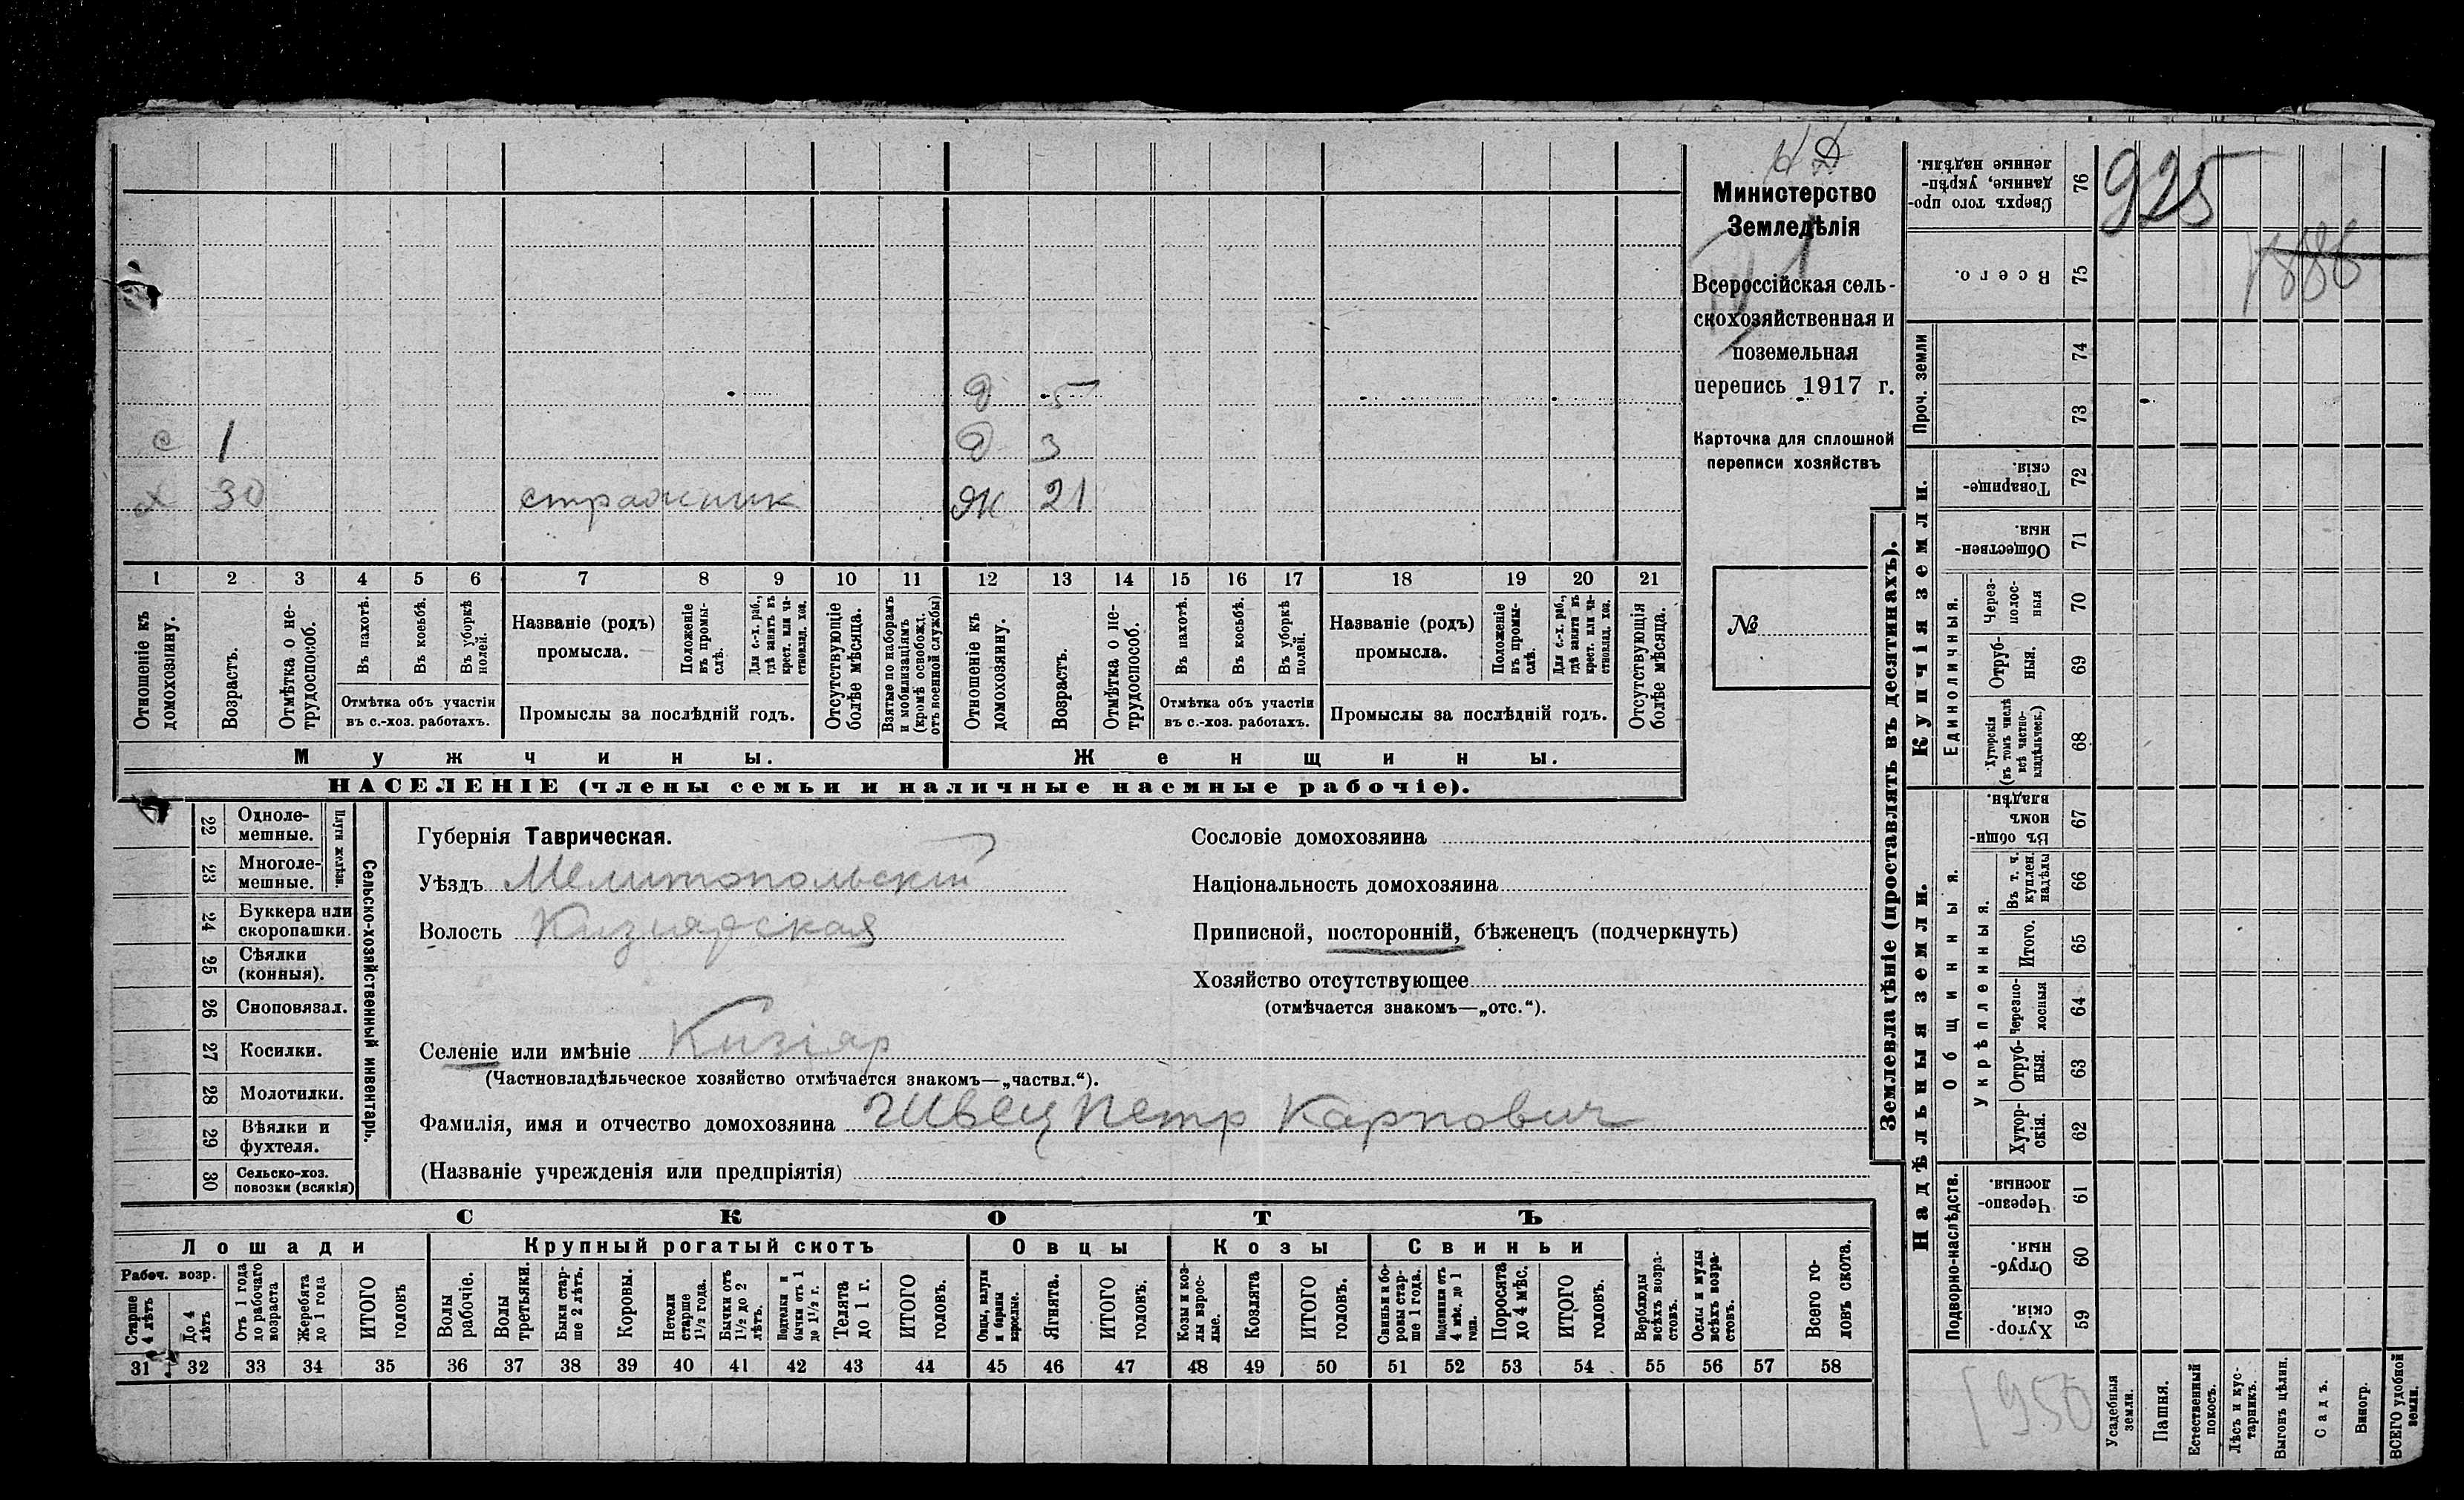 Министерство
Земледѣлія
Всероссійская сель-
скохозяйственная и
поземельная
перепись 1917 г.
Карточка для сплошной
переписи хозяйствъ
№
д 5
с 1 д 3
х 30 стражник ж 21
1 2 3 4 5 6 7 8 9 10 11 12 13 14 15 16 17 18 19 20 21
Отношеніе къ домохозяину.
Возрастъ.
Отмѣтка о не-трудоспособ.
Въ пахотѣ.
Въ косьбѣ.
Въ уборкѣ полей.
Отмѣтка объ участіи
въ с.-хоз. работахъ.
Названіе (родъ)
промысла.
Положеніе въ промы-слѣ.
Для с.-х. раб., гдѣ занятъ въ крест. или ча-стновлад. хоз.
Промыслы за послѣдній годъ.
Отсутствующіе болѣе мѣсяца.
Взятые по наборамъ и мобилизаціямъ (кромѣ освобожд. отъ военной службы)
Отношеніе къ домохозяину.
Возрастъ.
Отмѣтка о не-трудоспособ.
Въ пахотѣ.
Въ косьбѣ.
Въ уборкѣ полей.
Отмѣтка объ участіи
въ с.-хоз. работахъ.
Названіе (родъ)
промысла.
Положеніе въ промы-слѣ.
Для с.-х. раб., гдѣ занята въ крест. или ча-стновлад. хоз.
Промыслы за послѣдній годъ.
Отсутствующія болѣе мѣсяца.
Мужчины. Женщины.
НАСЕЛЕНІЕ (члены семьи и наличные наемные рабочіе).
22 Одноле-
мешные.
23 Многоле-
мешные.
Плуги желѣзн.
24 Буккера или
скоропашки.
25 Сѣялки
(конныя).
26 Сноповязал.
27 Косилки.
28 Молотилки.
29 Вѣялки и
фухтеля.
30 Сельско-хоз.
повозки (всякія)
Сельско-хозяйственный инвентарь.
Губернія Таврическая.
Уѣздъ Мелитопольскій
Волость Кизиярская
Селеніе или имѣніе Кизіяр
(Частновладѣльческое хозяйство отмѣчается знакомъ—„частвл.“).
Фамилія, имя и отчество домохозяина Швец Петр Карпович
(Названіе учрежденія или предпріятія)
Сословіе домохозяина
Національность домохозяина
Приписной, посторонній, бѣженецъ (подчеркнуть)
Хозяйство отсутствующее
(отмѣчается знакомъ—„отс.“).
СКОТЪ
Лошади Крупный рогатый скотъ Овцы Козы Свиньи
Рабоч. возр.
Старше 4 лѣтъ
До 4 лѣтъ
Отъ 1 года до рабочаго возраста
Жеребята до 1 года
ИТОГО головъ
Волы рабочіе.
Волы третьяки.
Быки стар-ше 2 лѣтъ.
Коровы.
Нетели старше 1½ года.
Бычки отъ 1½ до 2 лѣтъ.
Подтелки и бычки отъ 1 до 1½ г.
Телята до 1 г.
ИТОГО головъ.
Овцы, валухи и бараны взрослые.
Ягнята.
ИТОГО головъ.
Козы и коз-лы взрос-лые.
Козлята
ИТОГО головъ.
Свиньи и бо-ровы стар-ше 1 года.
Подсвинки отъ 4 мѣс. до 1 года.
Поросята до 4 мѣс.
ИТОГО головъ.
Верблюды всѣхъ возра-стовъ.
Ослы и мулы всѣхъ возра-стовъ.
Всего го-ловъ скота.
31 32 33 34 35 36 37 38 39 40 41 42 43 44 45 46 47 48 49 50 51 52 53 54 55 56 57 58
Землевладѣніе (проставлять въ десятинахъ).
Сверхъ того про-
данные, укрѣп-
ленные надѣлы.
76
925
Всего.
75
1886
Проч. земли
74
73
Купчія земли.
Товарище-
скія.
72
Обществен-
ныя.
71
Единоличныя.
Через-
полос-
ныя
70
Отруб-
ныя.
69
Хуторскія
(въ томъ числѣ
всѣ частно-
владѣльческ.)
68
Надѣльныя земли.
Общинныя.
Въ общи-
номъ
владѣн.
67
Укрѣпленныя.
Въ т. ч.
куплен.
надѣлы
66
Итого.
65
Черезпо-
лосныя
64
Отруб-
ныя.
63
Хутор-
скія.
62
Подворно-наслѣдств.
Черезпо-
лосныя.
61
Отруб-
ныя.
60
Хутор-
скія.
59
[950
Усадебныя земли.
Пашня.
Естественный покосъ.
Лѣсъ и кус-тарникъ.
Выгонъ цѣлин.
Садъ.
Виногр.
ВСЕГО удобной земли.